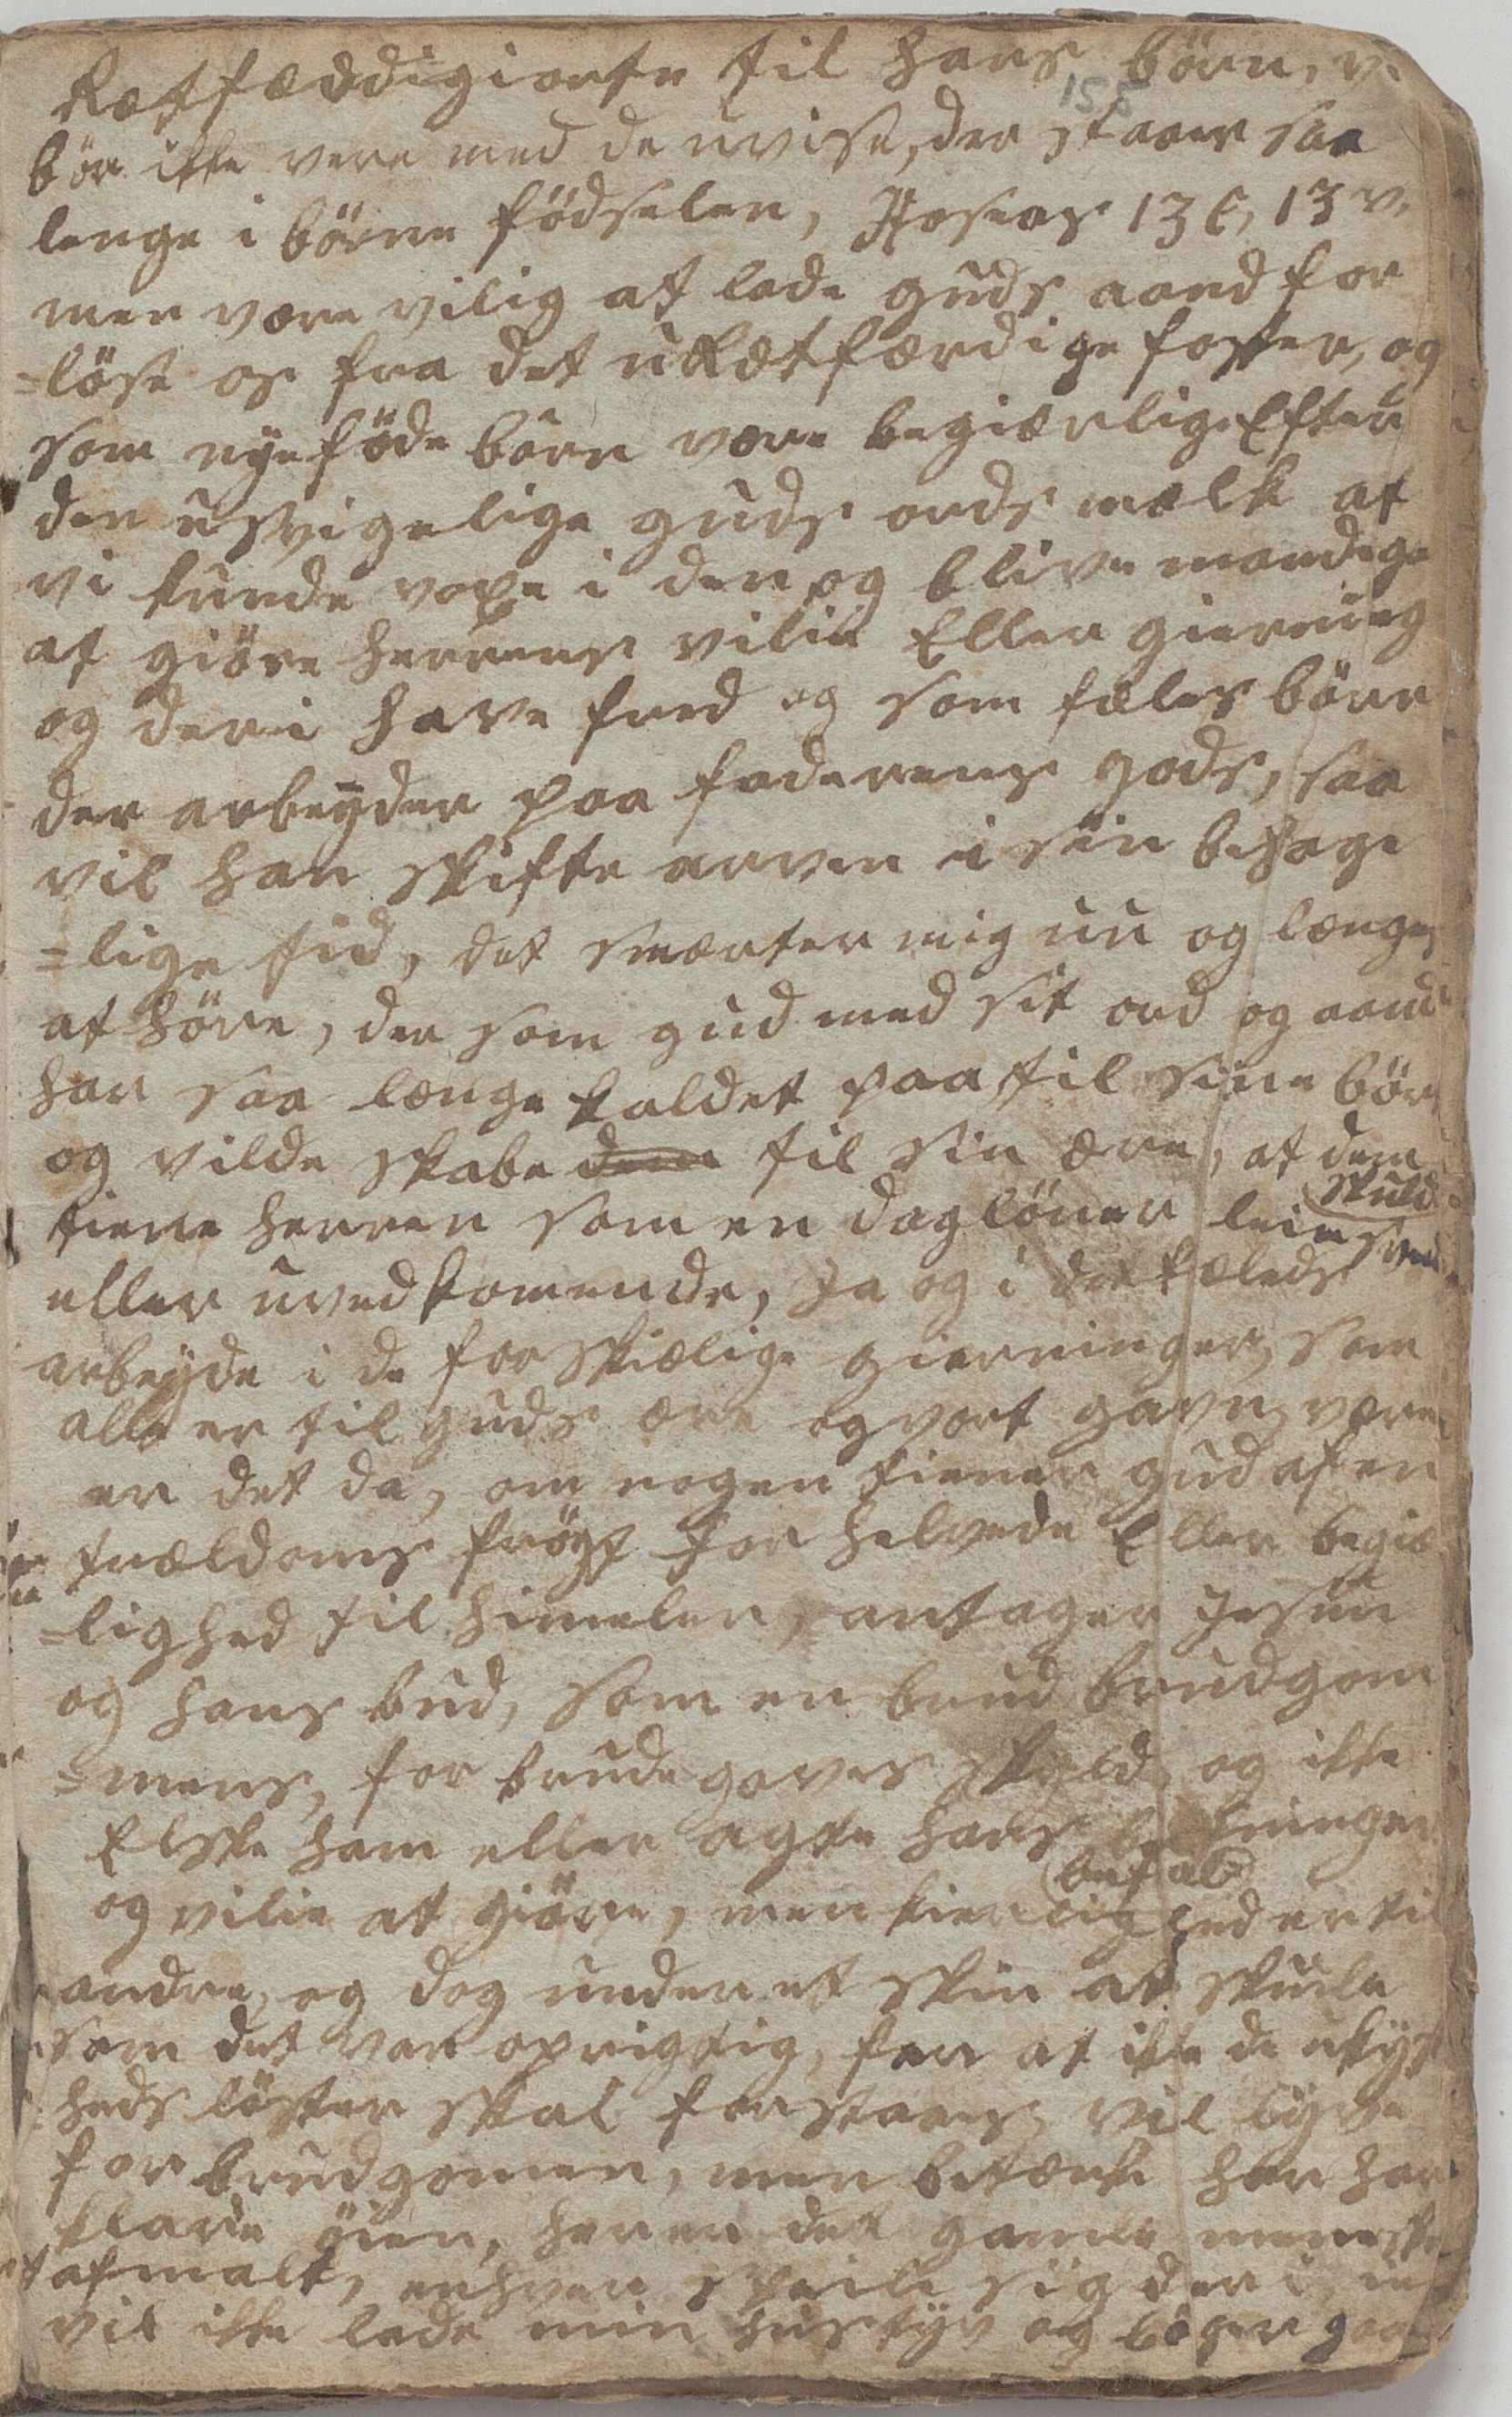 Retfærdigiorte til hans börn, v.
155
bör ikke vere med de uvise, der staaer saa
lenge i börne födselen, Hoseas 13 C, 13 v.
men være vilig at lade guds aand for
=löse os fra det uRetfærdige foster, og
som nye föde börn være begiærlig Efter
den usvigelige guds ords melk at
vi kunde voxe i den og blive mandige
at giöre herrens vilie Eller gierning
og deri have fred og som fæles börn
der arbeyder paa faderens gods, saa
vil han skifte arven i sin behage
=lige tid, det smerter mig nu og længe
at höre, der som gud med sit ord og aand
har saa længe kaldet paa til sine börn
og vilde skabe dem til sin ære, at dem
skuld
tiene herren som en daglöner leiesvend
eller uvedkomende, Ja og i det fæleds
arbeyde i de forskiælige gierninger, som
alle er til guds ære og vort gavn, være
er det da, om nogen tiener gud af en
trældoms frögt for helvede Eller begiæ
=lighed til himelen, antager Jesum
og hans bud, som en brud brudgom
=mens, for brudegaves skyld, og ikke
Elske ham eller agte hans
befal
og vilie at giöre, men kierlighed er til
andre, og dog under et skin at skiule
som det var oprigtig, for at ikke de ukysk
heds löster skal forstaaes, vil
for brudgomen, men betænk han har
klare öien, her er det gamle meneske
afmalt, enhver speile sig deri, ieg
vil ikke lade min hustru og böger gaa